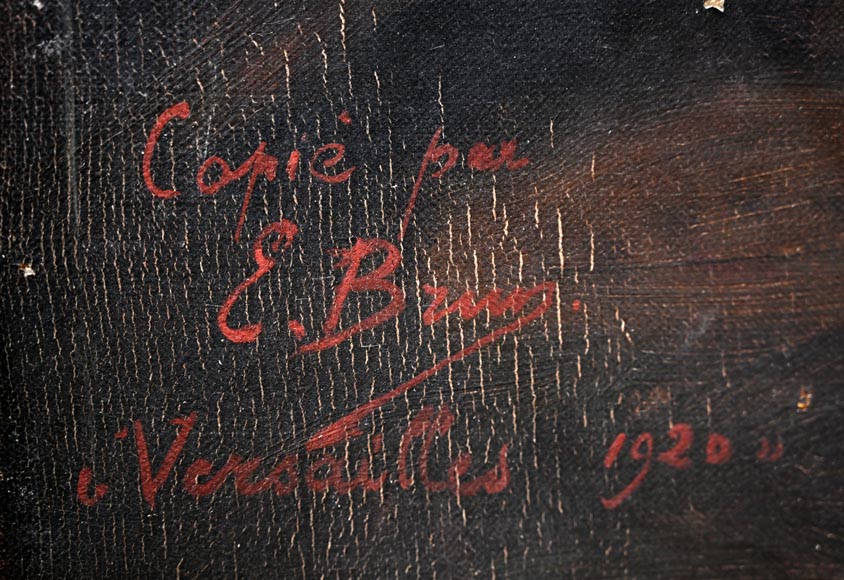 Copié par
E. Brun.
"Versailles 1920"